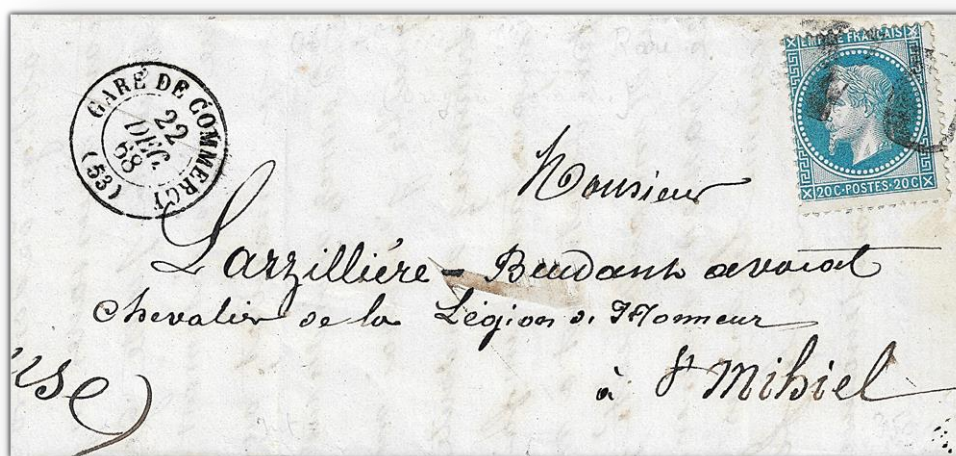 GARE DE COMMERCY
22
DEC.
68
(53)
EMPIRE FRANÇAIS
20C·POSTES·20C
Monsieur
Larzillière - Beudant avocat
Chevalier de la Légion d'Honneur
à St Mihiel